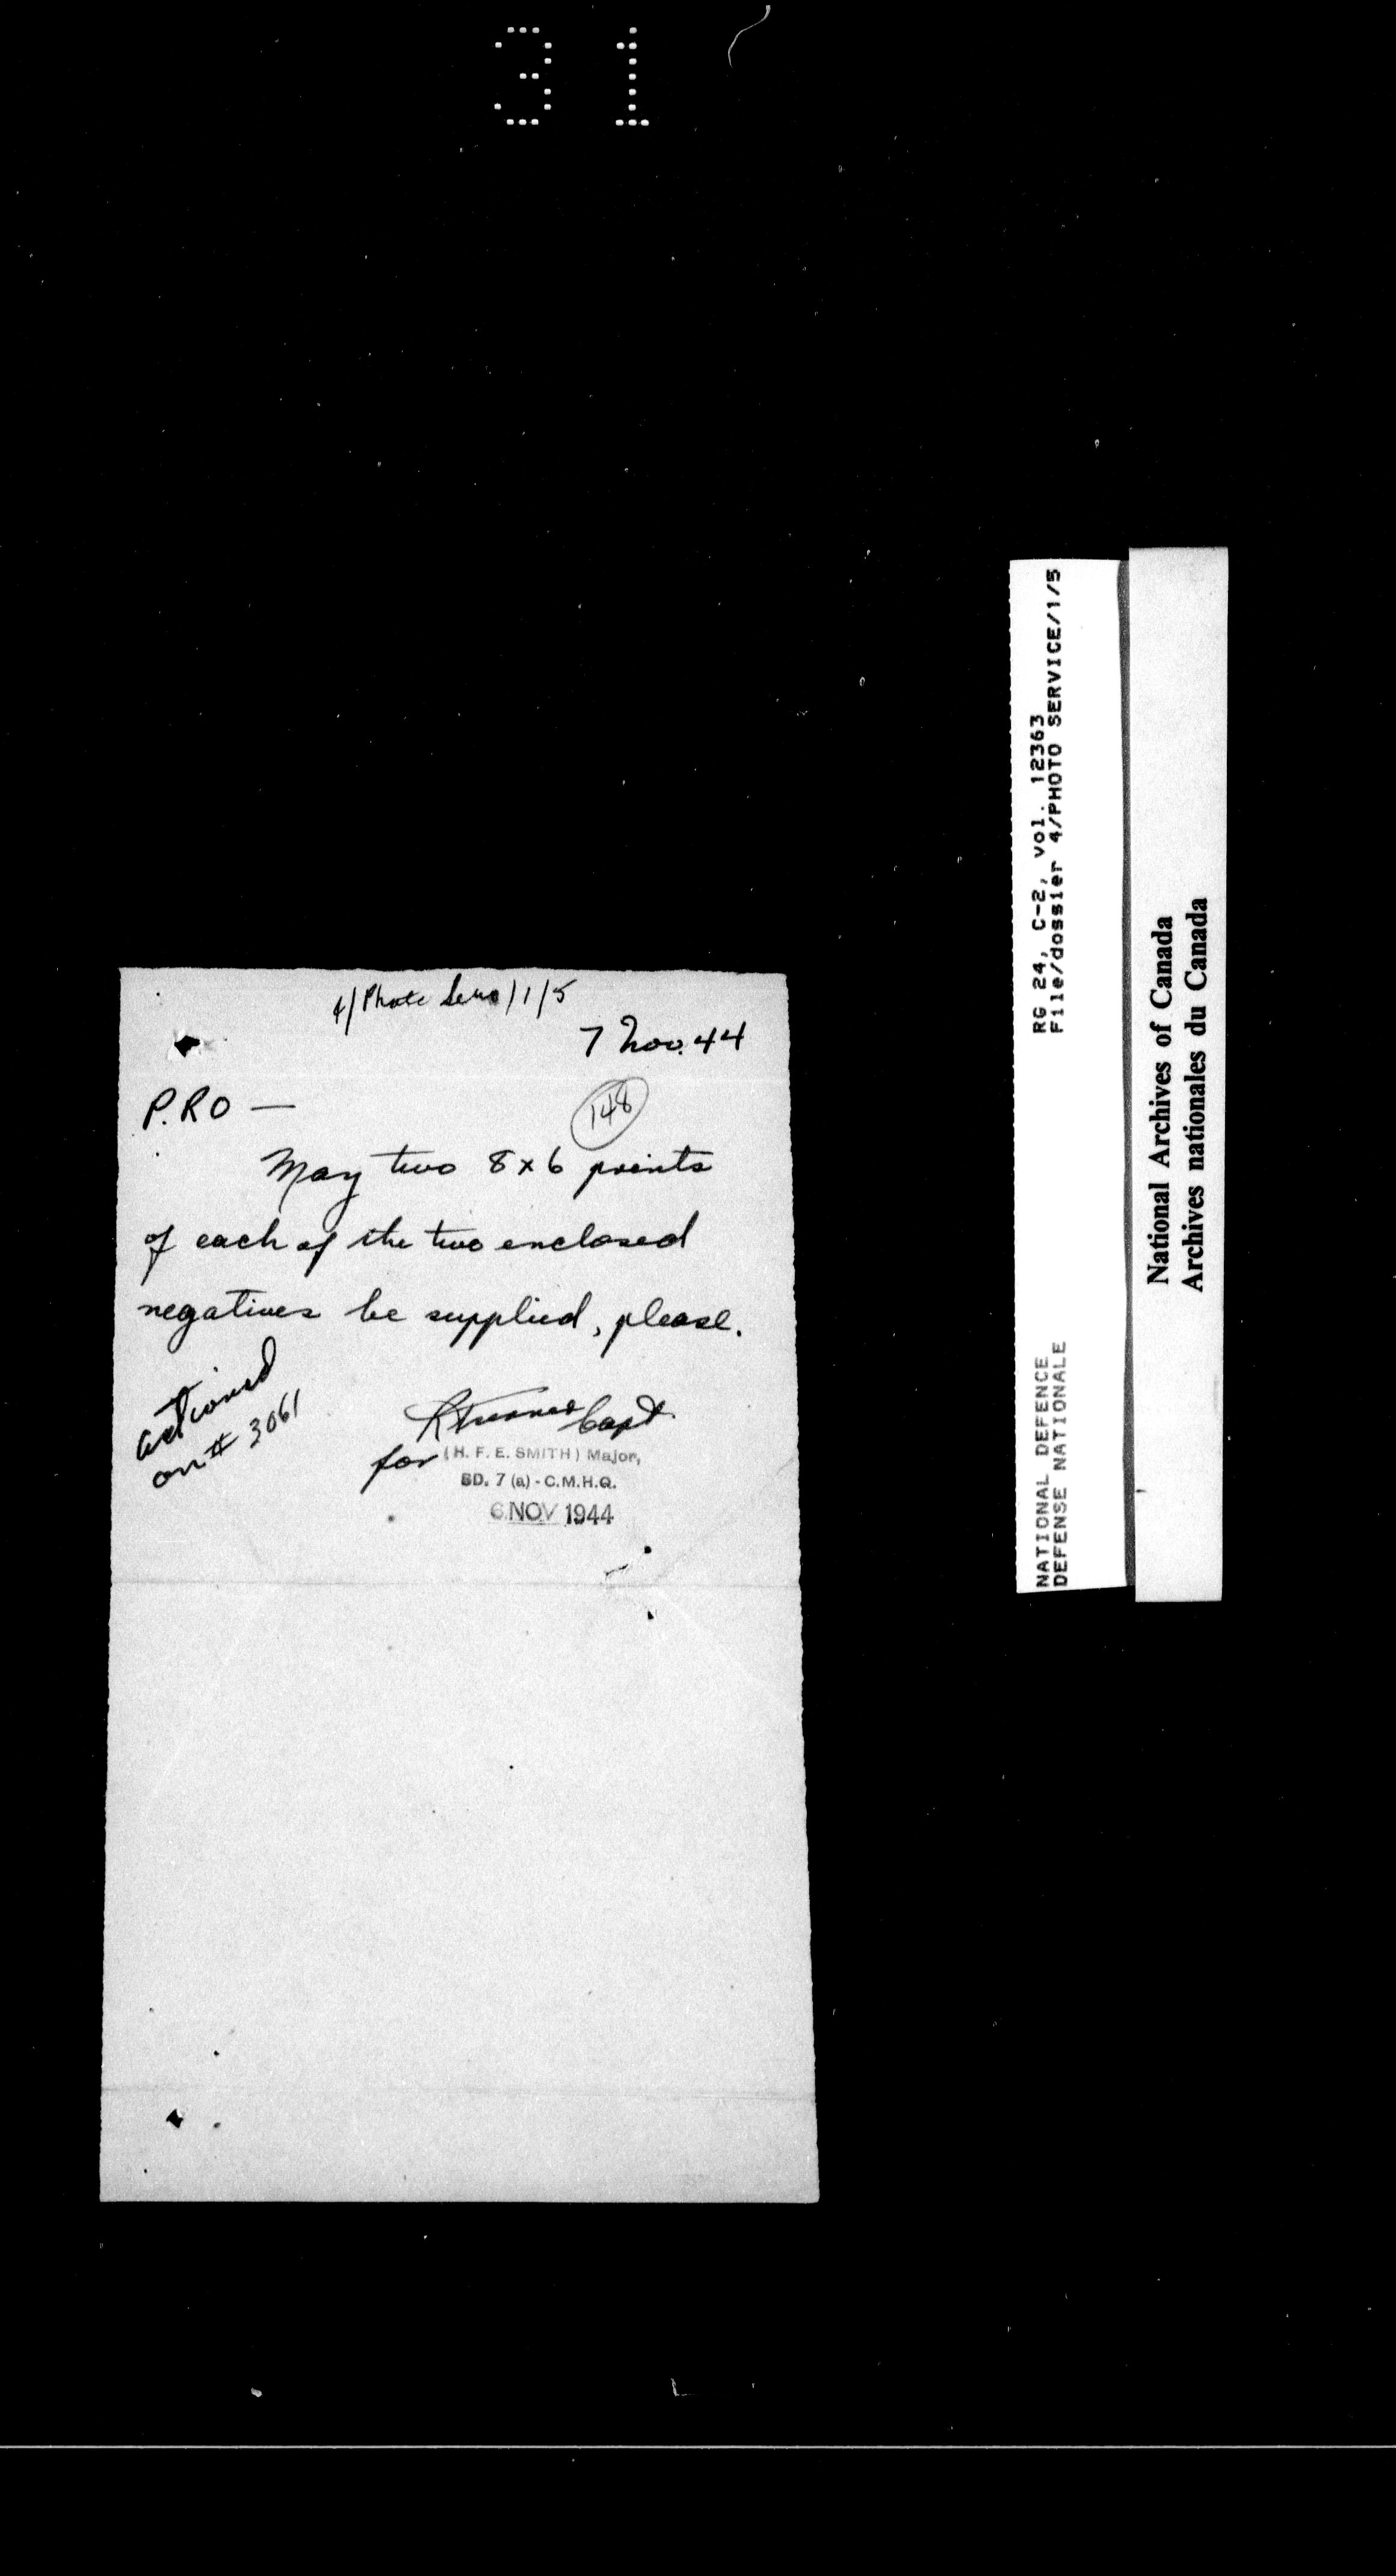 31
4/Photo Serv/1/5
7 Nov. 44
P.RO —
148
May two 8x6 prints
of each of the two enclosed
negatives be supplied, please.
actioned
on # 3061
Capt.
for (H. F. E. SMITH) Major,
SD. 7 (a) - C.M.H.Q.
6 NOV 1944
RG 24, C-2, vol. 12363
File/dossier 4/PHOTO SERVICE/1/5
NATIONAL DEFENCE
DEFENSE NATIONALE
National Archives of Canada
Archives nationales du Canada